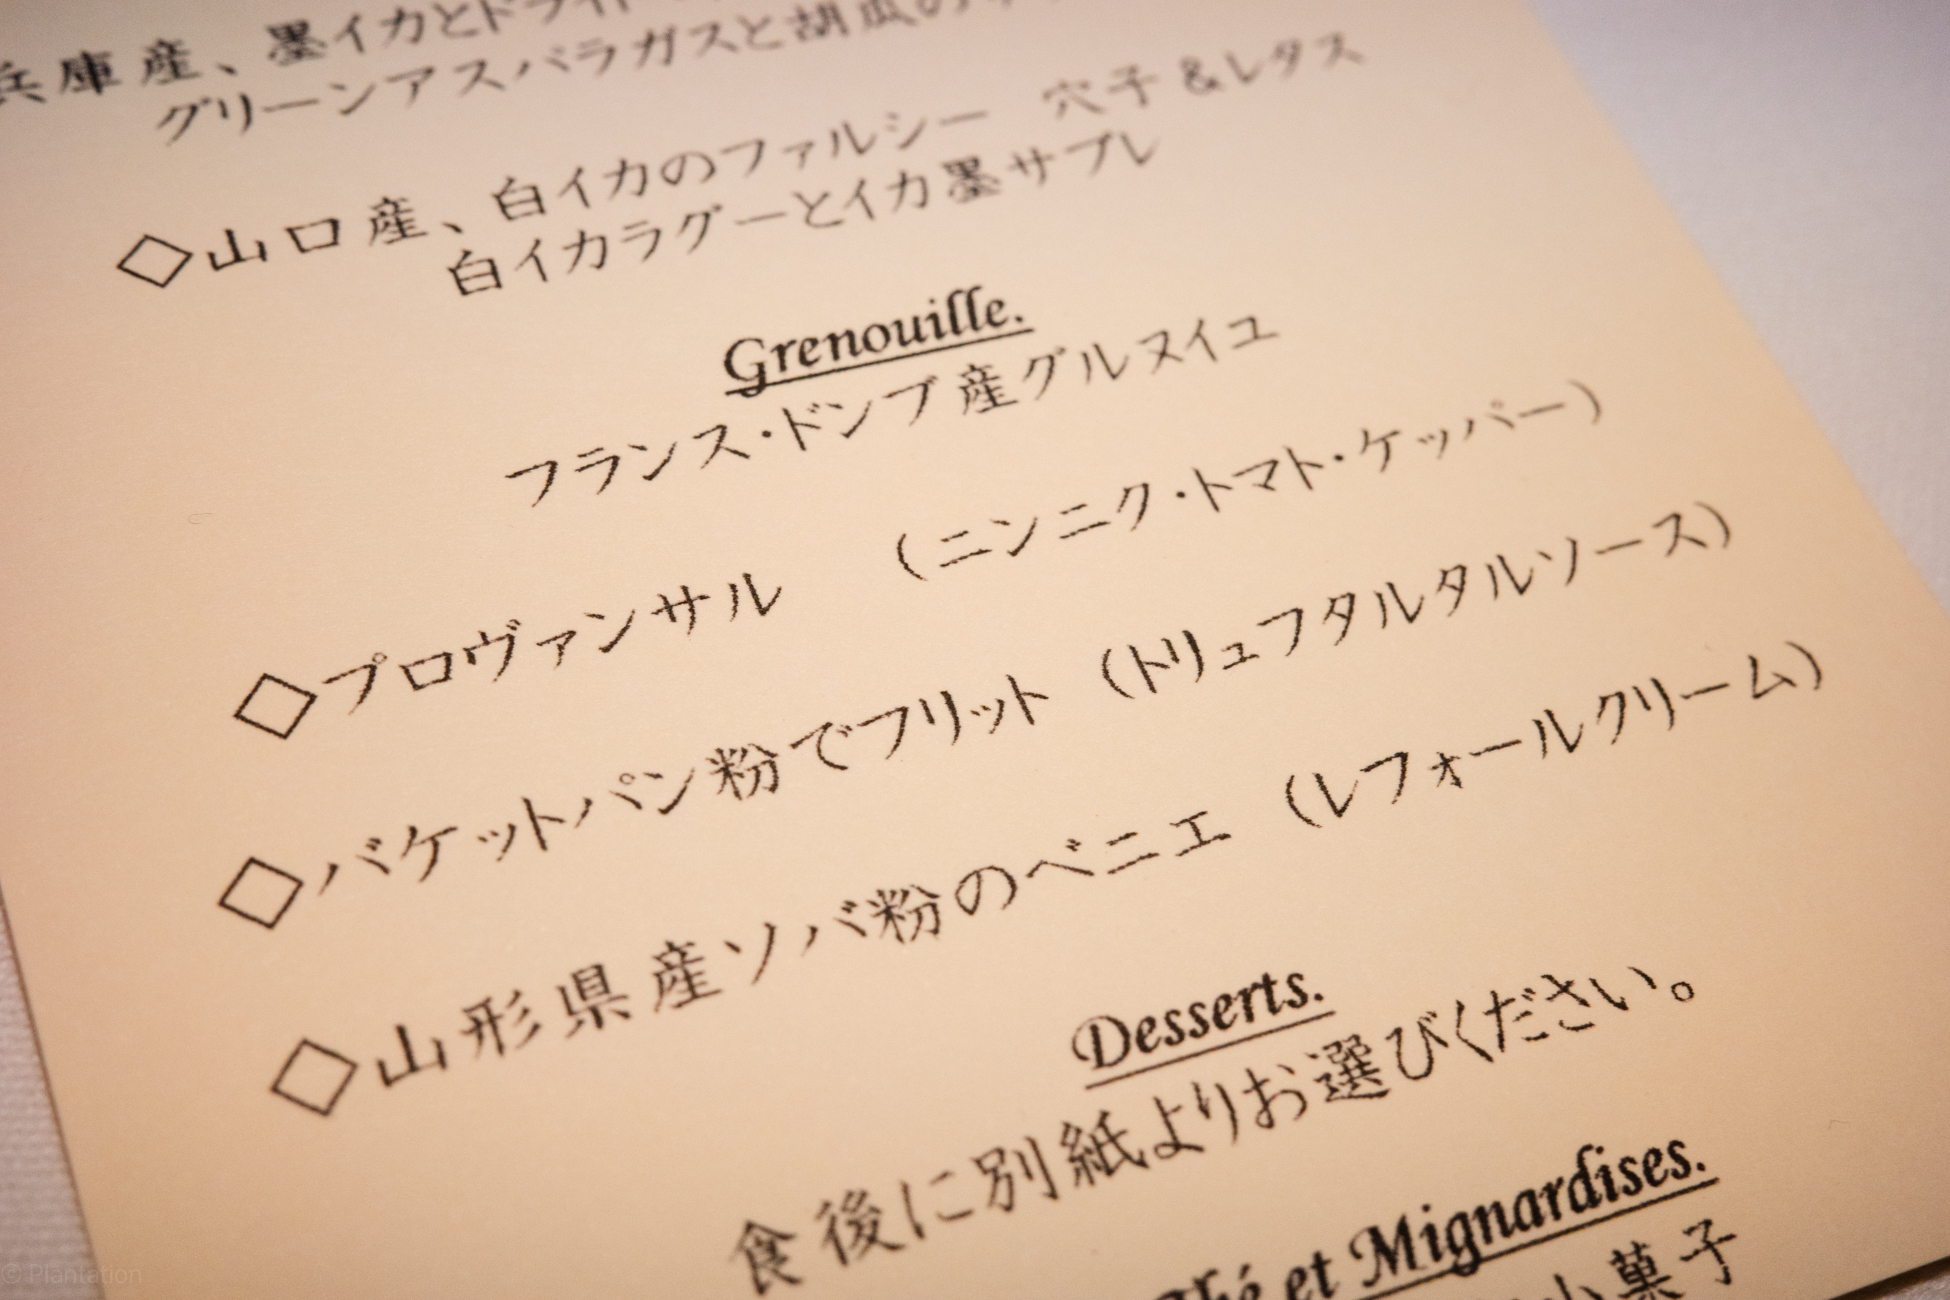 兵庫産、墨イカとドライ
グリーンアスパラガスと胡瓜の
◇山口産、白イカのファルシー 穴子&レタス
白イカラグーとイカ墨サブレ
Grenouille.
フランス・ドンブ産グルヌイユ
◇プロヴァンサル （ニンニク・トマト・ケッパー）
◇バケットパン粉でフリット （トリュフタルタルソース）
◇山形県産ソバ粉のベニエ （レフォールクリーム）
Desserts.
食後に別紙よりお選びください。
Thé et Mignardises.
小菓子
© Plantation